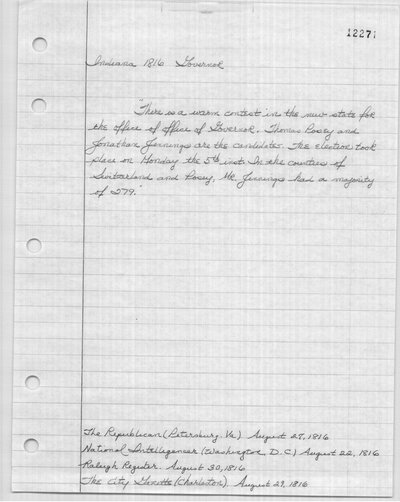 12271
Indiana 1816 Governor
"There is a warm contest in the new state for
the office of office of Governor. Thomas Posey and
Jonathan Jennings are the candidates. The election took
place on Monday the 5th inst. In the counties of
Switzerland and Posey, Mr. Jennings had a majority
of 279."
The Republican (Petersburg, Va.) August 28, 1816
National Intelligencer (Washington, D.C.) August 22, 1816
Raleigh Register. August 30, 1816
The City Gazette (Charleston). August 29, 1816